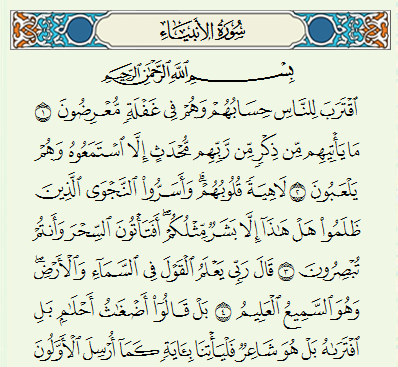 سُورَةُ الأَنبِيَاء
بِسْمِ اللَّهِ الرَّحْمَٰنِ الرَّحِيمِ
ٱقْتَرَبَ لِلنَّاسِ حِسَابُهُمْ وَهُمْ فِى غَفْلَةٍ مُّعْرِضُونَ ١
مَا يَأْتِيهِم مِّن ذِكْرٍ مِّن رَّبِّهِم مُّحْدَثٍ إِلَّا ٱسْتَمَعُوهُ وَهُمْ
يَلْعَبُونَ ٢ لَاهِيَةً قُلُوبُهُمْ ۗ وَأَسَرُّوا۟ ٱلنَّجْوَى ٱلَّذِينَ
ظَلَمُوا۟ هَلْ هَٰذَآ إِلَّا بَشَرٌ مِّثْلُكُمْ ۖ أَفَتَأْتُونَ ٱلسِّحْرَ وَأَنتُمْ
تُبْصِرُونَ ٣ قَالَ رَبِّى يَعْلَمُ ٱلْقَوْلَ فِى ٱلسَّمَآءِ وَٱلْأَرْضِ ۖ
وَهُوَ ٱلسَّمِيعُ ٱلْعَلِيمُ ٤ بَلْ قَالُوٓا۟ أَضْغَٰثُ أَحْلَٰمٍۭ بَلِ
ٱفْتَرَىٰهُ بَلْ هُوَ شَاعِرٌ فَلْيَأْتِنَا بِـَٔايَةٍ كَمَآ أُرْسِلَ ٱلْأَوَّلُونَ